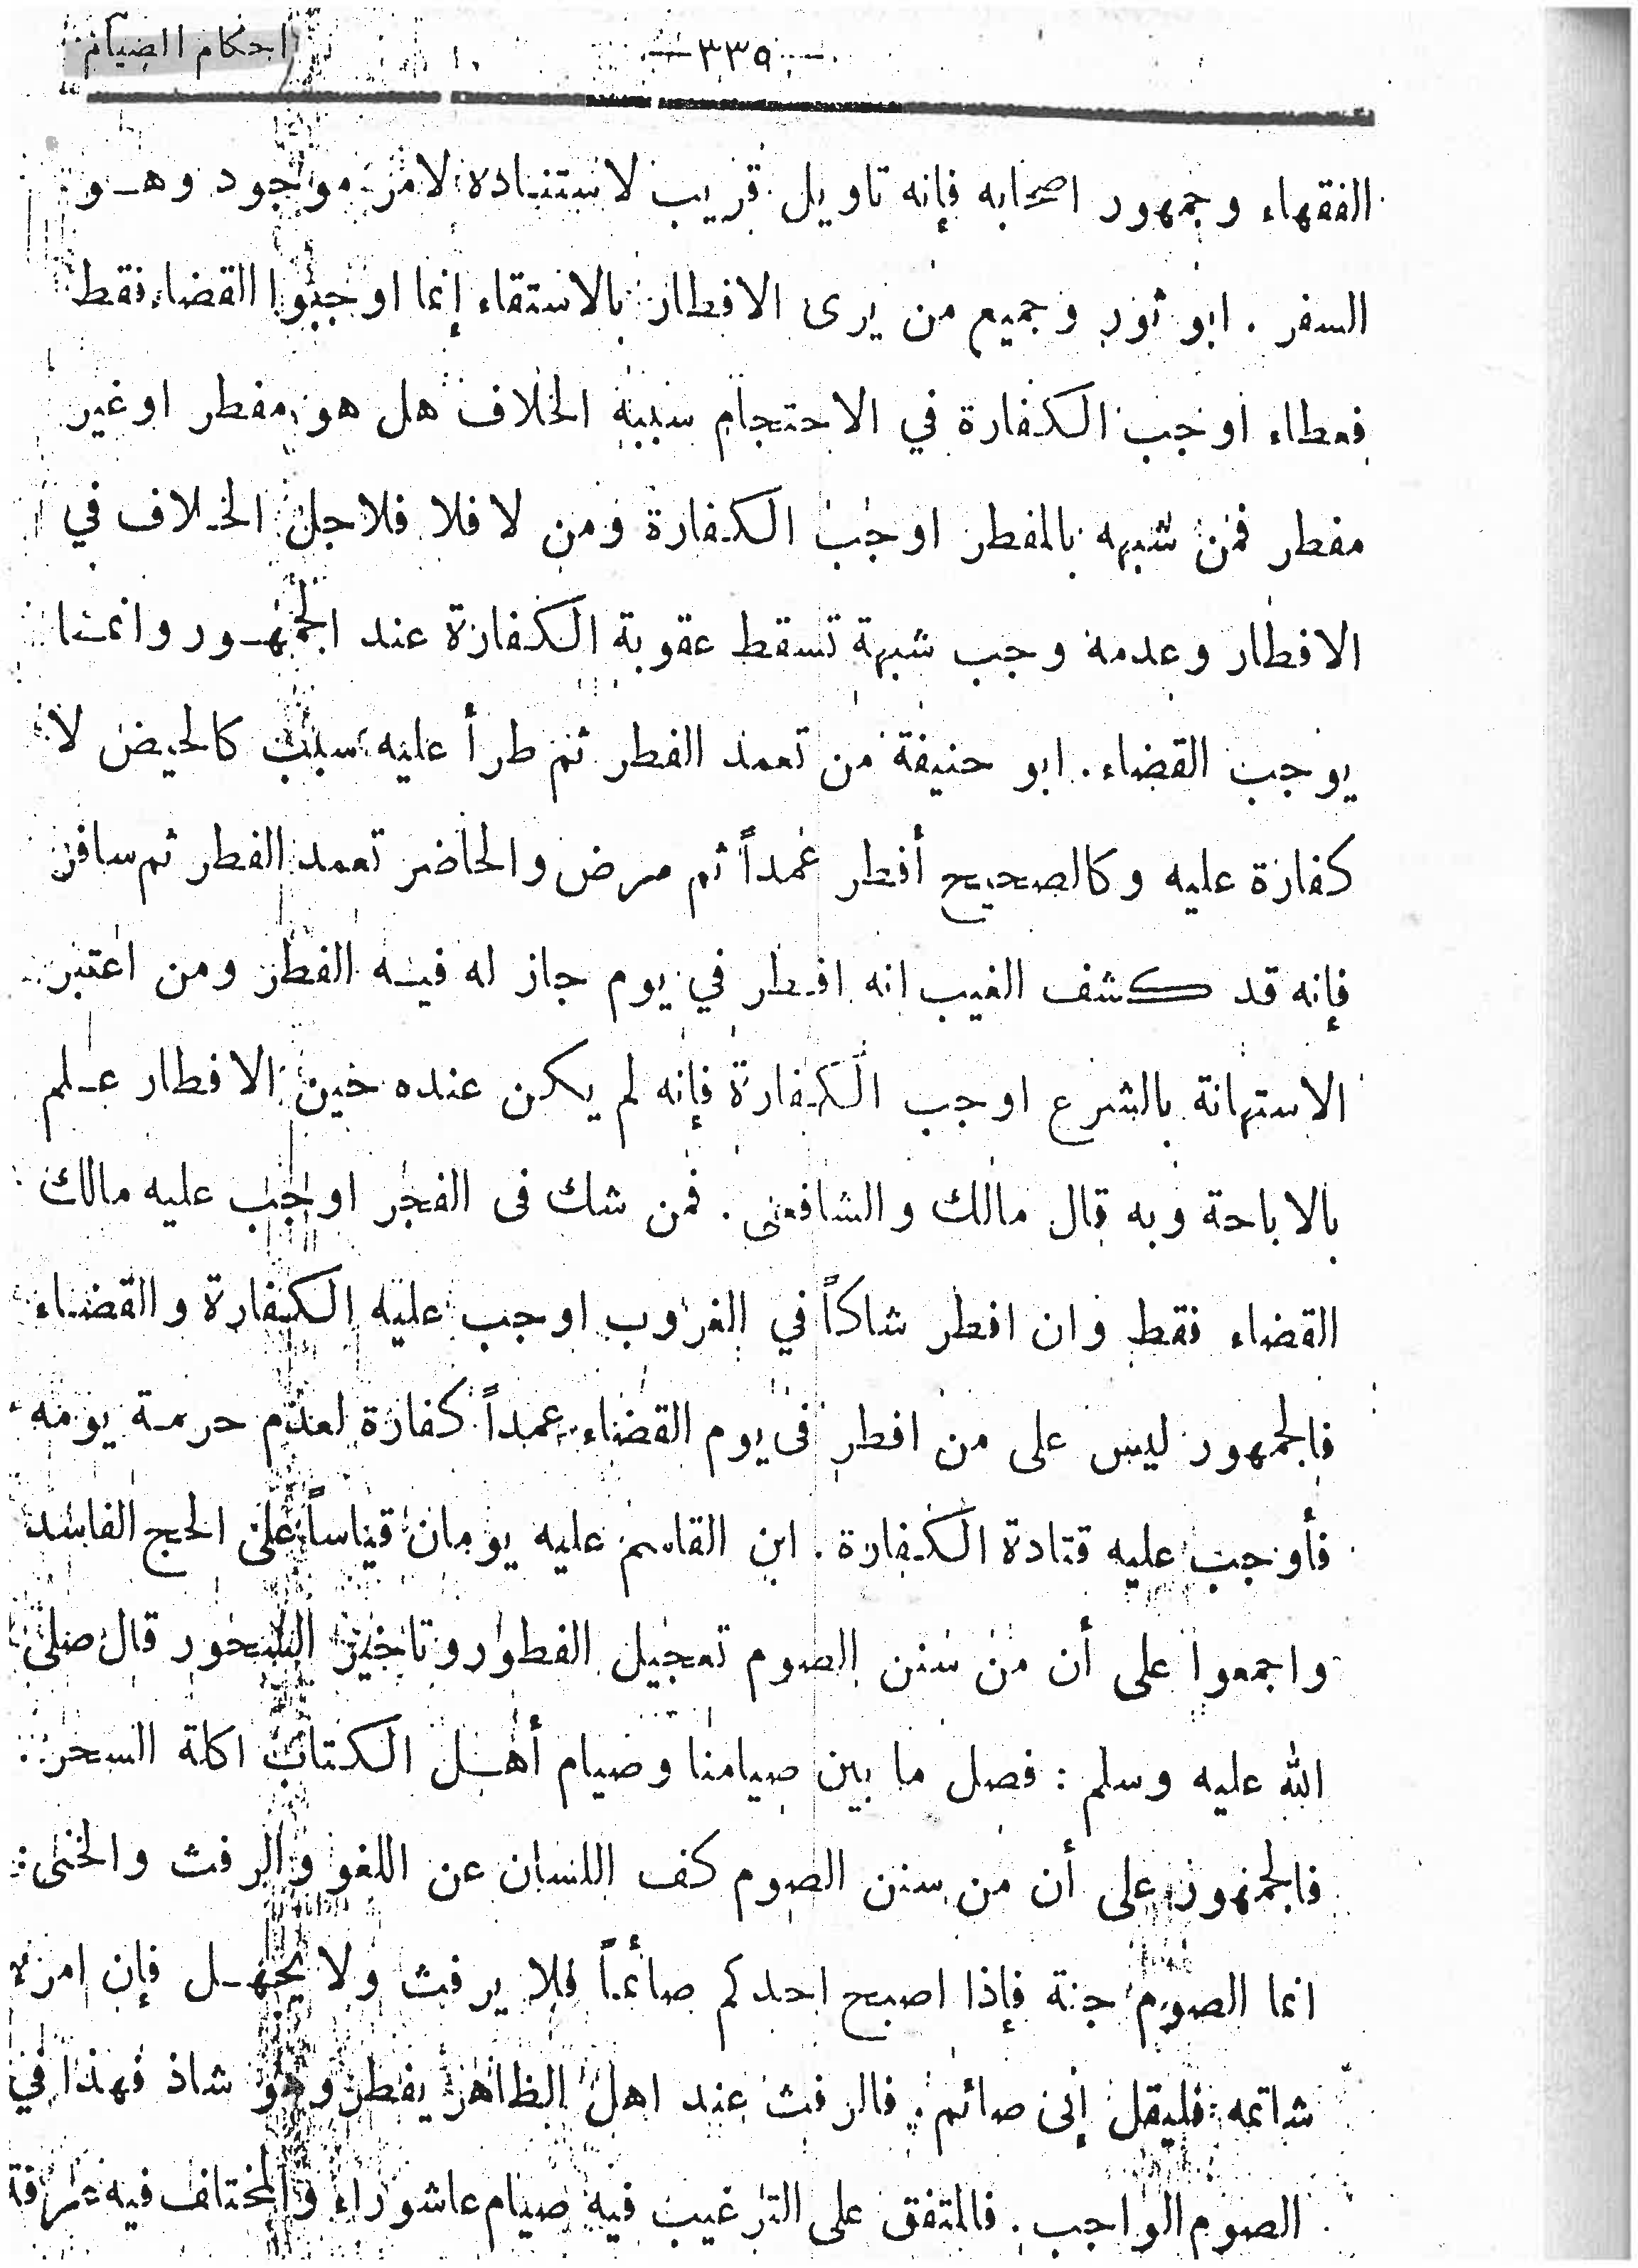 احكام الصيام
— ٣٣٥ —
الفقهاء وجمهور اصحابه فإنه تاويل قريب لاستناده لامر موجود وهو
السفر . ابو ثور وجميع من يرى الافطار بالاستقاء إنما اوجبوا القضاء فقط
فعطاء اوجب الكفارة في الاحتجام سببه الخلاف هل هو مفطر او غير
مفطر فمن شبهه بالمفطر اوجب الكفارة ومن لا فلا فلاجل الخلاف في
الافطار وعدمه وجب شبهة تسقط عقوبة الكفارة عند الجمهور وانما
يوجب القضاء . ابو حنيفة من تعمد الفطر ثم طرأ عليه سبب كالحيض لا
كفارة عليه وكالصحيح أفطر عمداً ثم مرض والحاضر تعمد الفطر ثم سافر
فإنه قد كشف الغيب انه افطر في يوم جاز له فيه الفطر ومن اعتبر
الاستهانة بالشرع اوجب الكفارة فإنه لم يكن عنده حين الافطار علم
بالاباحة وبه قال مالك والشافعى . فمن شك فى الفجر اوجب عليه مالك
القضاء فقط وان افطر شاكاً في الغروب اوجب عليه الكفارة والقضاء
فالجمهور ليس على من افطر فى يوم القضاء عمداً كفارة لعدم حرمة يومه
فأوجب عليه قتادة الكفارة . ابن القاسم عليه يومان قياساً على الحج الفاسد
واجمعوا على أن من سنن الصوم تعجيل الفطور وتاخير السحور قال صلى
الله عليه وسلم : فصل ما بين صيامنا وصيام أهل الكتاب اكلة السحر .
فالجمهور على أن من سنن الصوم كف اللسان عن اللغو والرفث والخنى :
انما الصوم جنة فإذا اصبح احدكم صائماً فلا يرفث ولا يجهل فإن امرء
شاتمه فليقل إنى صائم . فالرفث عند اهل الظاهر يفطر وهو شاذ فهذا في
الصوم الواجب . فالمتفق على الترغيب فيه صيام عاشوراء والمختلف فيه عرفة